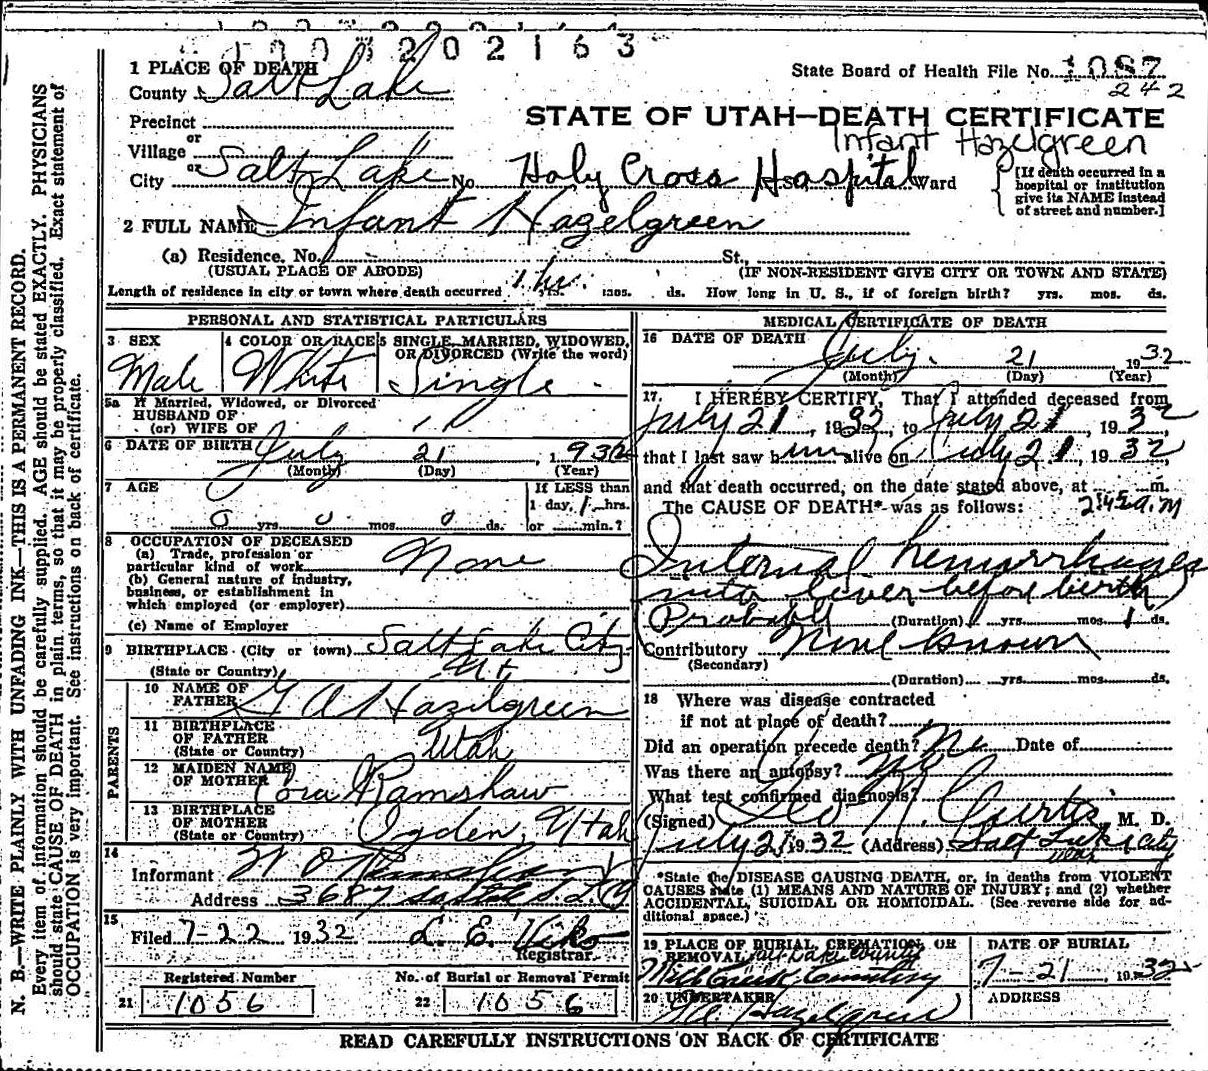 1003202163
1 PLACE OF DEATH
County Salt Lake
State Board of Health File No. 1087
242
Precinct
STATE OF UTAH—DEATH CERTIFICATE
Infant Hazelgreen
or
Village
or
City Salt Lake No. Holy Cross Hospital Ward
[If death occurred in a hospital or institution give its NAME instead of street and number.]
2 FULL NAME Infant Hazelgreen
(a) Residence. No. St.,
(USUAL PLACE OF ABODE) (IF NON-RESIDENT GIVE CITY OR TOWN AND STATE)
Length of residence in city or town where death occurred 1 hr. yrs. mos. ds. How long in U. S., if of foreign birth? yrs. mos. ds.
PERSONAL AND STATISTICAL PARTICULARS
3 SEX 4 COLOR OR RACE 5 SINGLE, MARRIED, WIDOWED, OR DIVORCED (Write the word)
Male White Single
5a If Married, Widowed, or Divorced
HUSBAND OF
(or) WIFE OF
6 DATE OF BIRTH July 21, 1932
(Month) (Day) (Year)
7 AGE If LESS than
1 day, 1 hrs.
0 yrs. 0 mos. 0 ds. or min.?
8 OCCUPATION OF DECEASED
(a) Trade, profession or
particular kind of work None
(b) General nature of industry,
business, or establishment in
which employed (or employer)
(c) Name of Employer
9 BIRTHPLACE (City or town) Salt Lake City
(State or Country) Ut
PARENTS
10 NAME OF FATHER G A Hazelgreen
11 BIRTHPLACE OF FATHER (State or Country) Utah
12 MAIDEN NAME OF MOTHER Cora Ramshaw
13 BIRTHPLACE OF MOTHER (State or Country) Ogden, Utah
14
Informant
Address 3687
15
Filed 7-22 1932 L. E. Viko
Registrar
Registered Number No. of Burial or Removal Permit
21 1056 22 1056
MEDICAL CERTIFICATE OF DEATH
16 DATE OF DEATH
July 21 1932
(Month) (Day) (Year)
17. I HEREBY CERTIFY, That I attended deceased from
July 21, 1932, to July 21, 1932
that I last saw him alive on July 21, 1932,
and that death occurred, on the date stated above, at m.
The CAUSE OF DEATH* was as follows: 2:45 a.m
Internal hemorrhages
into liver before birth
(Probably (Duration) yrs. mos. 1 ds.
Contributory None known
(Secondary)
(Duration) yrs. mos. ds.
18 Where was disease contracted
if not at place of death?
Did an operation precede death? No Date of
Was there an autopsy? No
What test confirmed diagnosis?
(Signed) Geo N. Curtis, M. D.
July 21, 1932 (Address) Salt Lake City
Utah
*State the DISEASE CAUSING DEATH, or, in deaths from VIOLENT
CAUSES state (1) MEANS AND NATURE OF INJURY; and (2) whether
ACCIDENTAL, SUICIDAL OR HOMICIDAL. (See reverse side for ad-
ditional space.)
19 PLACE OF BURIAL, CREMATION, OR REMOVAL DATE OF BURIAL
Salt Lake County
Mill Creek Cemetery 7-21 1932
20 UNDERTAKER ADDRESS
G. A. Hazelgreen
READ CAREFULLY INSTRUCTIONS ON BACK OF CERTIFICATE
N. B.—WRITE PLAINLY WITH UNFADING INK—THIS IS A PERMANENT RECORD.
Every item of information should be carefully supplied. AGE should be stated EXACTLY. PHYSICIANS
should state CAUSE OF DEATH in plain terms, so that it may be properly classified. Exact statement of
OCCUPATION is very important. See instructions on back of certificate.